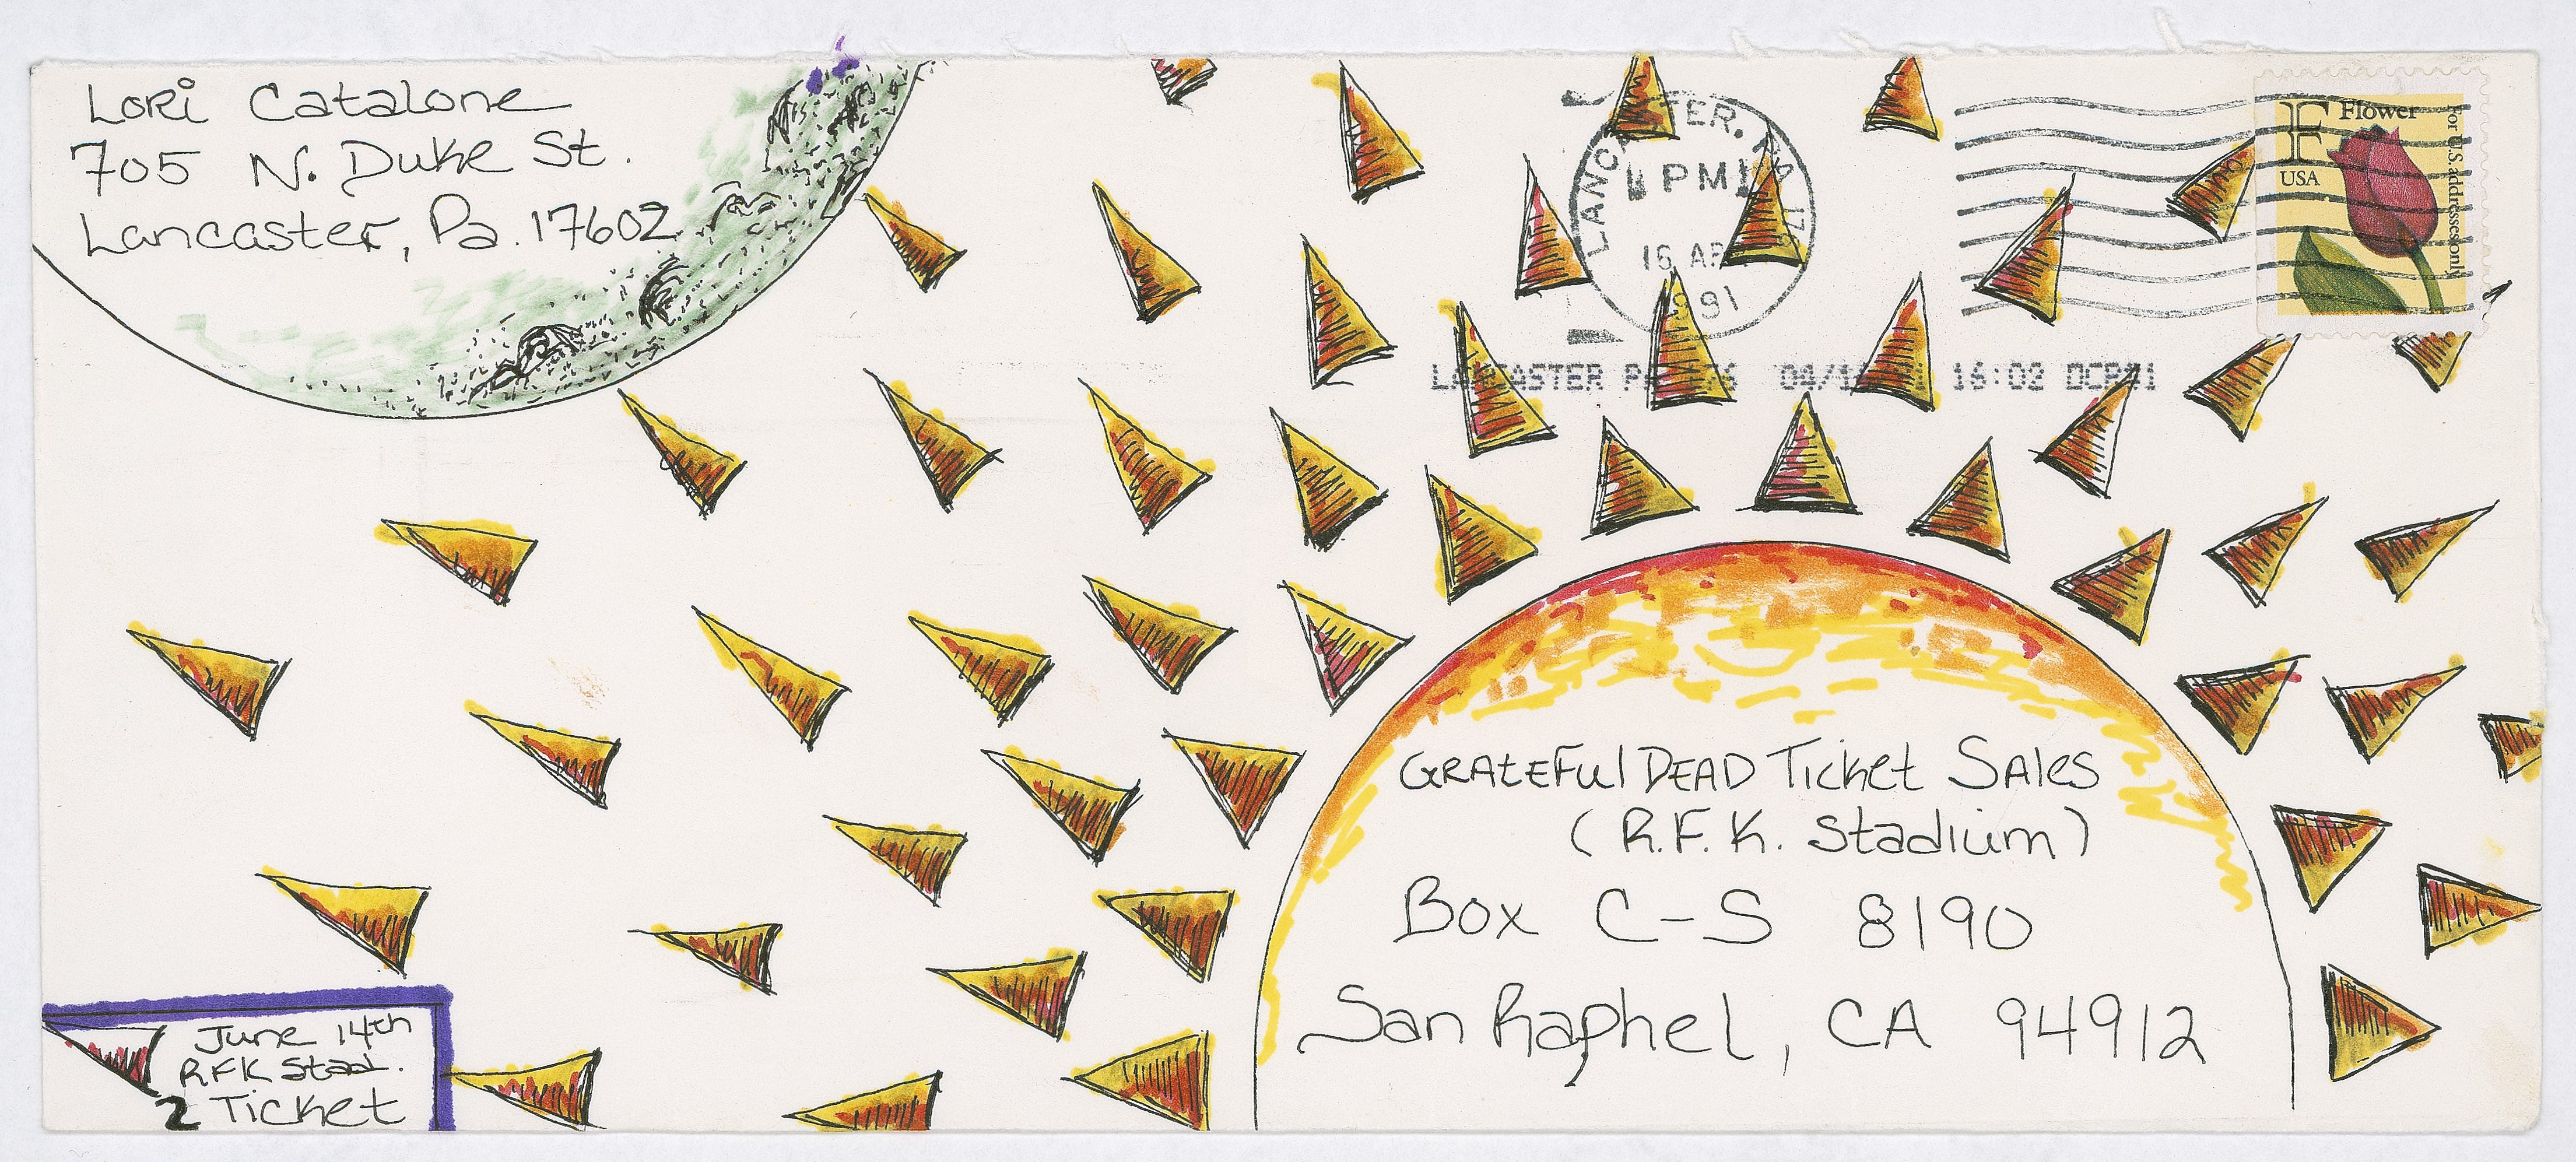 Lori Catalone
705 N. Duke St.
Lancaster, Pa. 17602
PM
16
1991
LANCASTER 16:02
F Flower
USA
For U.S. addresses only
GRATEFUL DEAD Ticket SALES
(R.F.K. Stadium)
Box C-S 8190
San Raphel, CA 94912
June 14th
RFK Stad.
2 Ticket